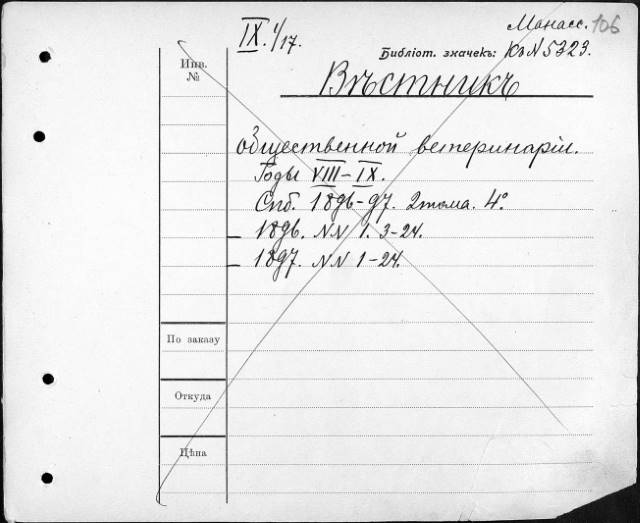 IX. 1/17.
Манасс. 106
Библіот. значекъ: Къ N 5323.
Инв. №
Вѣстникъ
общественной ветеринаріи.
Годы VIII–IX.
Спб. 1896–97. 2 тома. 4º
1896. NN 1. 3–24.
1897. NN 1–24.
По заказу
Откуда
Цѣна